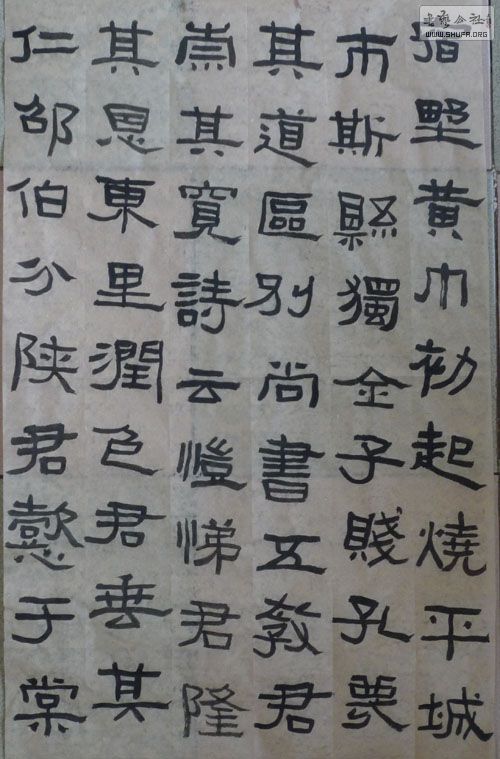 宿墅黃巾初起燒平城
市斯縣獨全子賤孔蔑
其道區別尚書五教君
崇其寬詩云愷悌君隆
其恩東里潤色君垂其
仁邵伯分陝君懿于棠
书艺公社
WWW.SHUFA.ORG